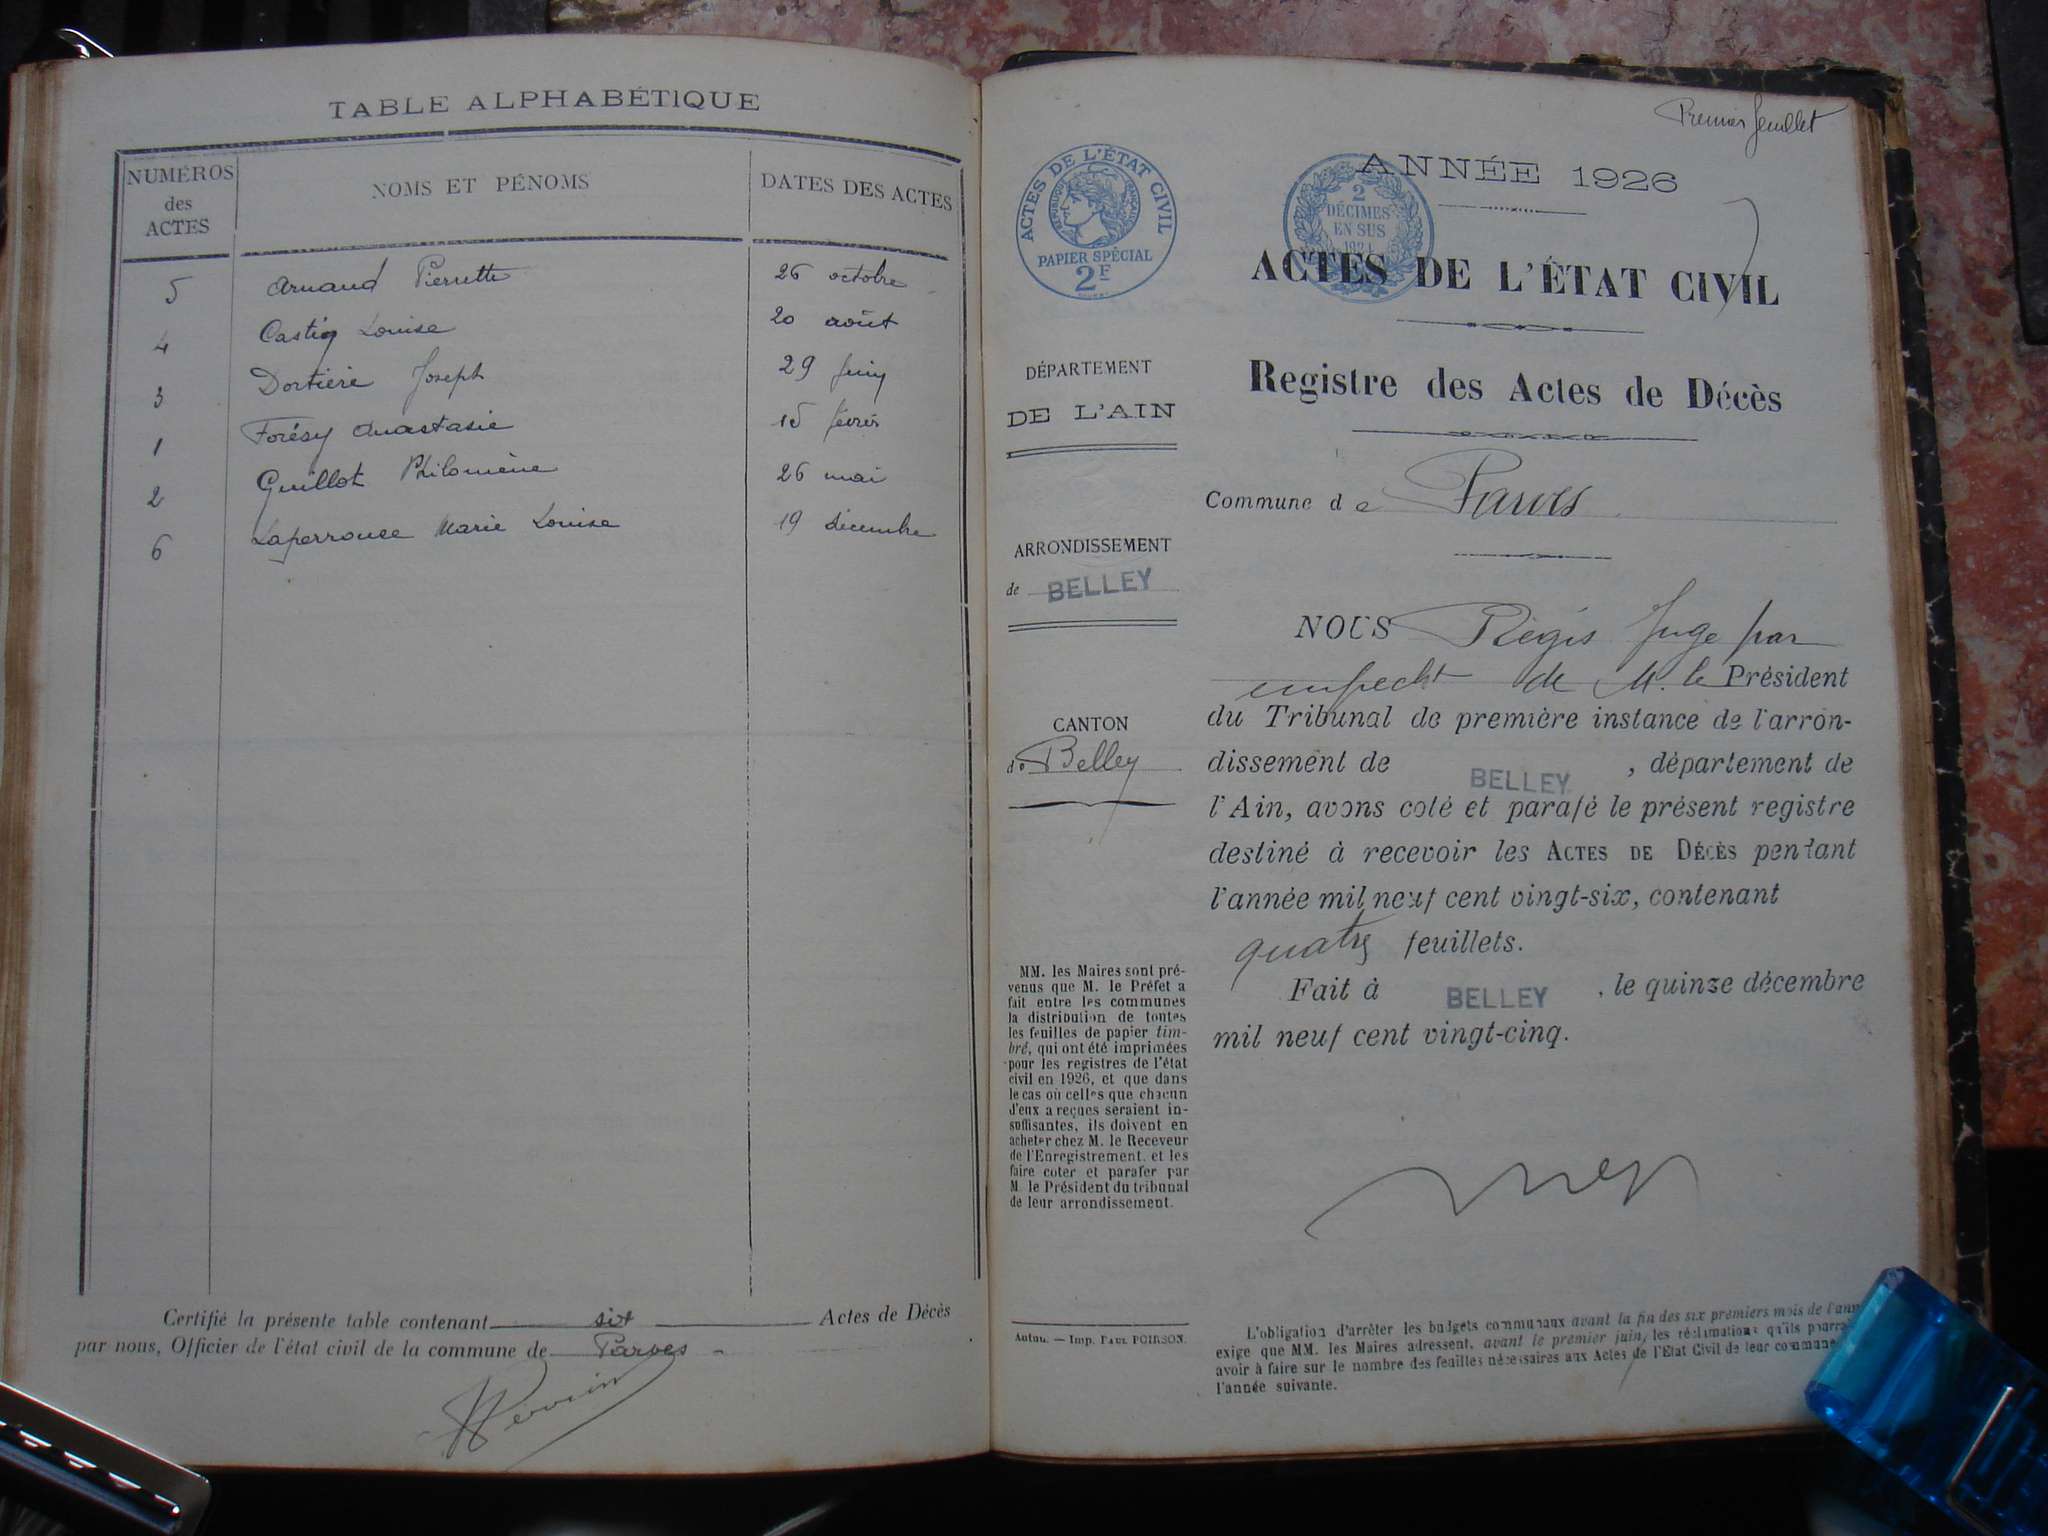 TABLE ALPHABÉTIQUE
NUMÉROS des ACTES
NOMS ET PÉNOMS
DATES DES ACTES
5 Arnaud Pierrette 26 octobre
4 Castin Louise 20 août
3 Dortière Joseph 29 Juin
1 Forésy Anastasie 15 février
2 Guillot Philomène 26 mai
6 Laperrouse Marie Louise 19 décembre
Certifié la présente table contenant six Actes de Décès
par nous, Officier de l'état civil de la commune de Parves
Premier feuillet
ACTES DE L'ÉTAT CIVIL
RÉPUBLIQUE FRANÇAISE
PAPIER SPÉCIAL
2F
2
DÉCIMES
EN SUS
ANNÉE 1926
ACTES DE L'ÉTAT CIVIL
Registre des Actes de Décès
Commune de Parves
DÉPARTEMENT
DE L'AIN
ARRONDISSEMENT
de BELLEY
CANTON
de Belley
NOUS Régis Juge par
empecht de M. le Président
du Tribunal de première instance de l'arron-
dissement de BELLEY, département de
l'Ain, avons coté et parafé le présent registre
destiné à recevoir les ACTES DE DÉCÈS pendant
l'année mil neuf cent vingt-six, contenant
quatre feuillets.
Fait à BELLEY, le quinze décembre
mil neuf cent vingt-cinq.
MM. les Maires sont pré-
venus que M. le Préfet a
fait entre les communes
la distribution de toutes
les feuilles de papier tim-
bré, qui ont été imprimées
pour les registres de l'état
civil en 1926, et que dans
le cas où celles que chacun
d'eux a reçues seraient in-
suffisantes, ils doivent en
acheter chez M. le Receveur
de l'Enregistrement, et les
faire coter et parafer par
M. le Président du tribunal
de leur arrondissement.
Autun. — Imp. PAUL POIRSON.
L'obligation d'arrêter les budgets communaux avant la fin des six premiers mois de l'ann
exige que MM. les Maires adressent, avant le premier juin, les réclamations qu'ils pourra
avoir à faire sur le nombre des feuilles nécessaires aux Actes de l'Etat Civil de leur commune
l'année suivante.